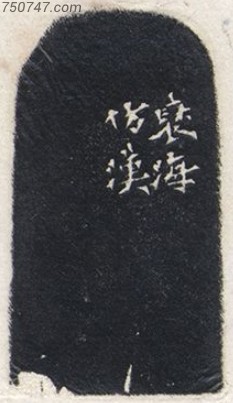 750747.com
海
仿漢